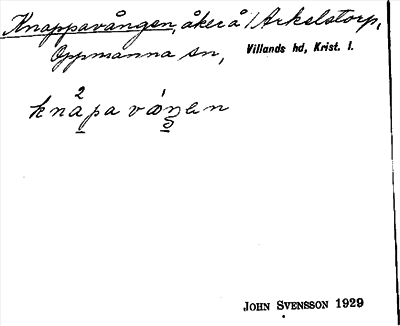 Knappavången, åker å /Arkelstorp,
Oppmanna sn, Villands hd, Krist. l.
JOHN SVENSSON 1929